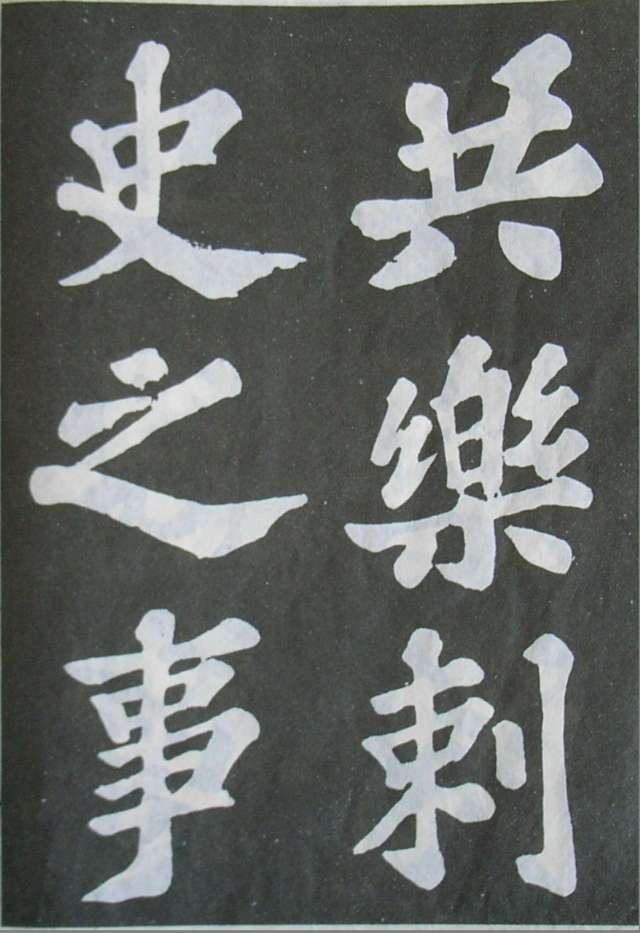 共樂刺
史之事